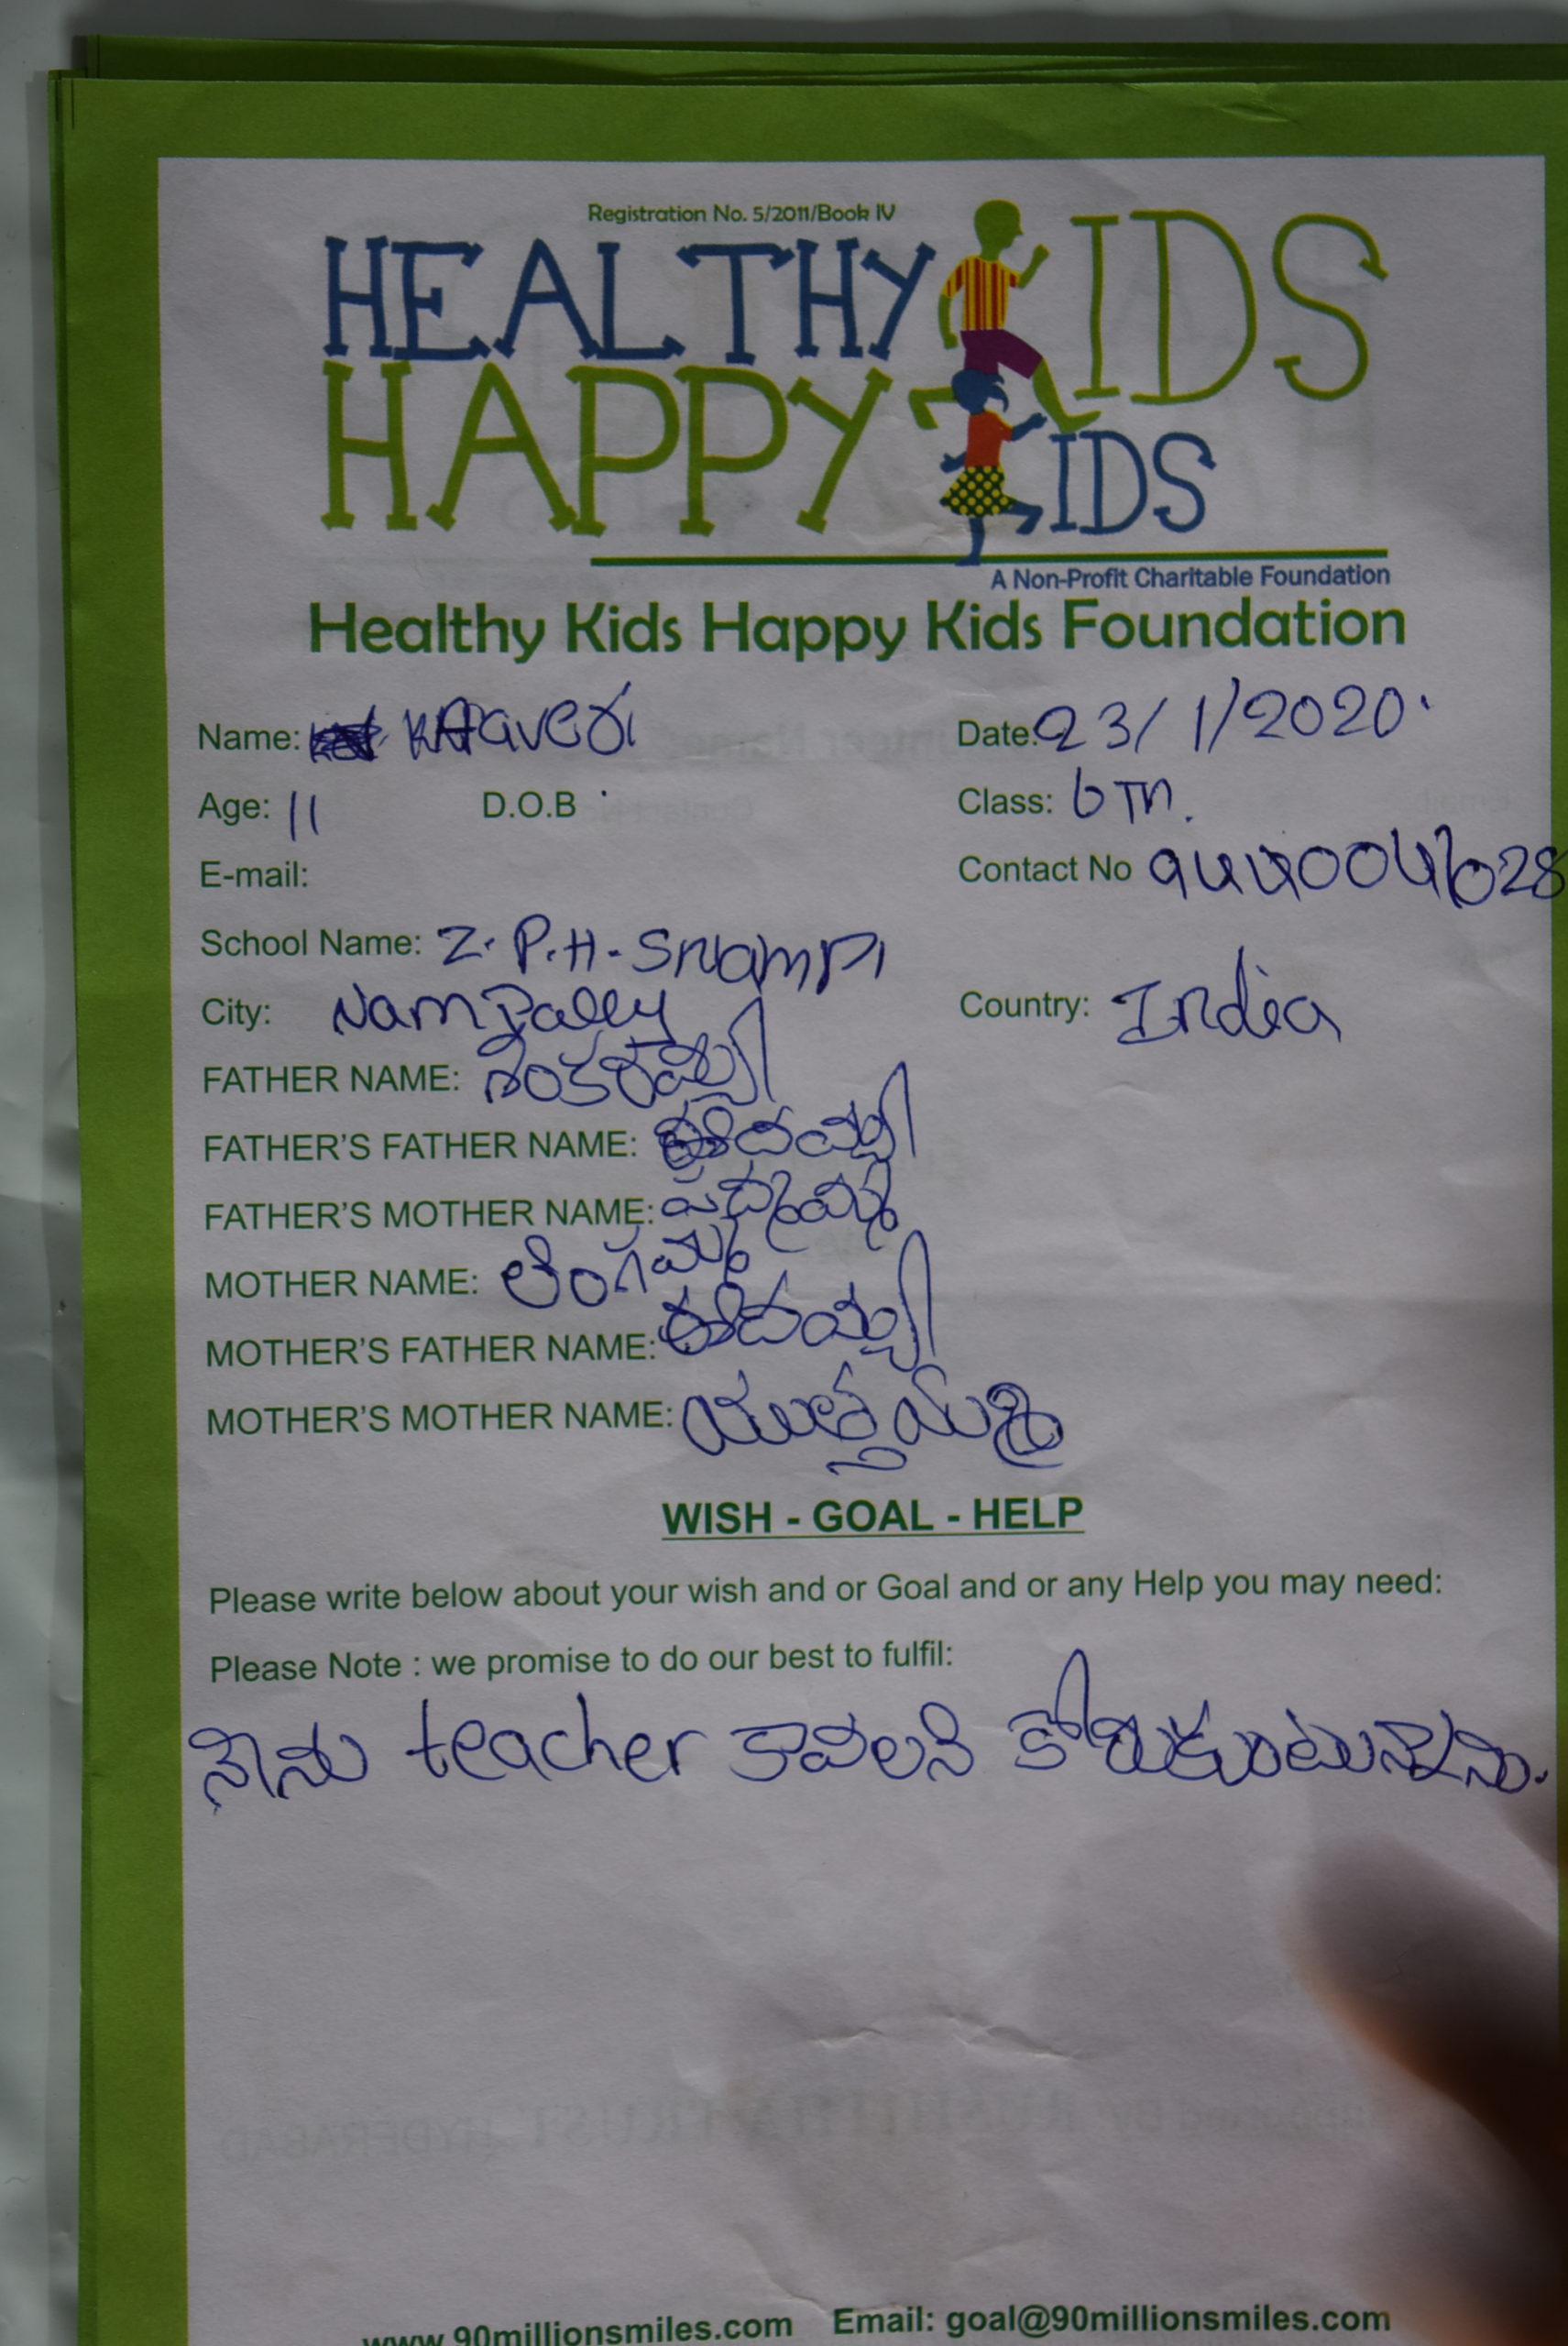 Registration No. 5/2011/Book IV
HEALTHY KIDS
HAPPY KIDS
A Non-Profit Charitable Foundation
Healthy Kids Happy Kids Foundation
Name: KAaveri Date: 23/1/2020.
Age: 11 D.O.B Class: 6TH.
E-mail: Contact No
School Name: Z.P.H.
City: Nampally Country: India
FATHER NAME: శంకరయ్య
FATHER'S FATHER NAME: ఈదయ్య
FATHER'S MOTHER NAME:
MOTHER NAME: లింగమ్మ
MOTHER'S FATHER NAME: ఈదయ్య
MOTHER'S MOTHER NAME:
WISH - GOAL - HELP
Please write below about your wish and or Goal and or any Help you may need:
Please Note : we promise to do our best to fulfil:
నేను teacher కావలని కోరుకుంటున్నాను.
www.90millionsmiles.com Email: goal@90millionsmiles.com